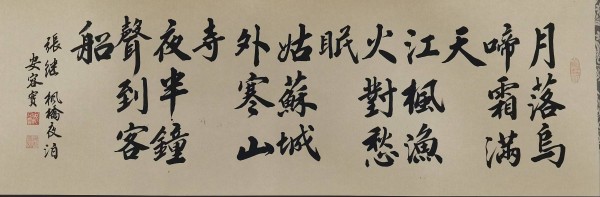 月落烏
啼霜滿
天
江楓漁
火對愁
眠
姑蘇城
外寒山
寺
夜半鐘
聲到客
船
張继 楓橋夜泊